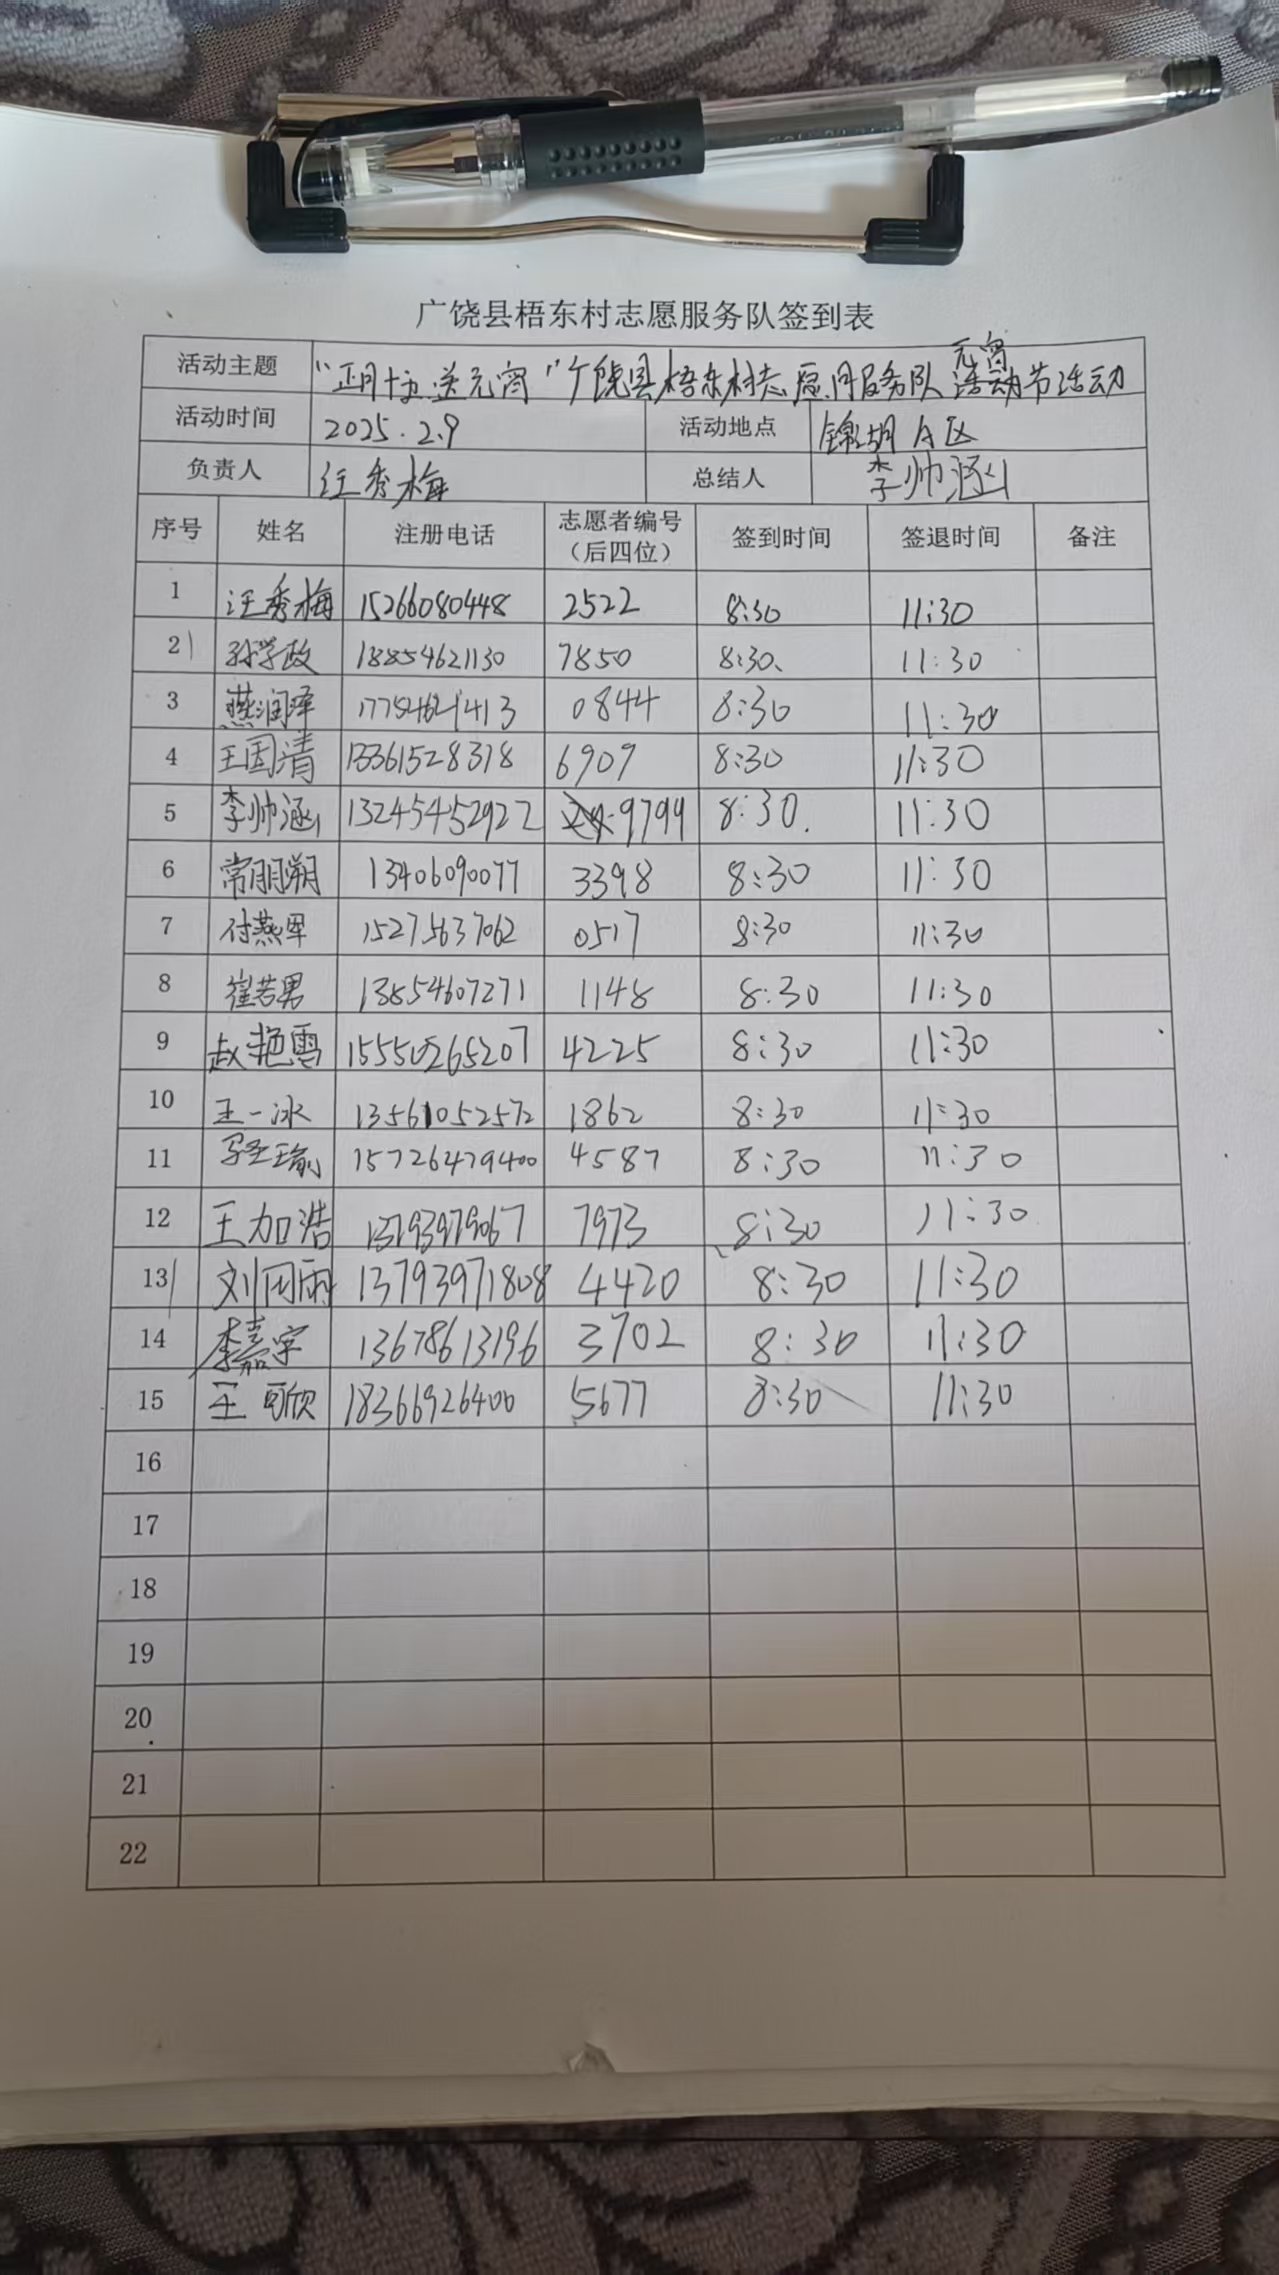 广饶县梧东村志愿服务队签到表
活动主题 “正月十五送元宵”广饶县梧东村志愿服务队元宵活动节活动
活动时间 2025.2.9 活动地点 锦湖A区
负责人 汪秀梅 总结人 李帅涵
序号 姓名 注册电话 志愿者编号（后四位） 签到时间 签退时间 备注
1 汪秀梅 15266080448 2522 8:30 11:30
2 孙学政 18854621130 7850 8:30 11:30
3 燕润泽 0844 8:30 11:30
4 王国清 13361528318 6909 8:30 11:30
5 李帅涵 13245452922 9799 8:30 11:30
6 常朋朔 13406090077 3398 8:30 11:30
7 付燕军 15275637062 0517 8:30 11:30
8 崔若男 13854607271 1148 8:30 11:30
9 赵艳雪 15550265207 4225 8:30 11:30
10 王一冰 13561052572 1862 8:30 11:30
11 15726479400 4587 8:30 11:30
12 王加浩 13793979067 7973 8:30 11:30
13 刘雨 13793971808 4420 8:30 11:30
14 李嘉宇 13678613196 3702 8:30 11:30
15 王可欣 18366926400 5677 8:30 11:30
16
17
18
19
20
21
22